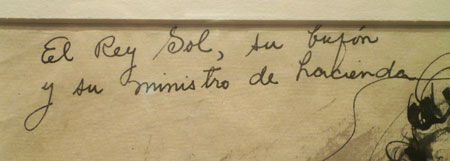 El Rey Sol, su bufón
y su ministro de hacienda